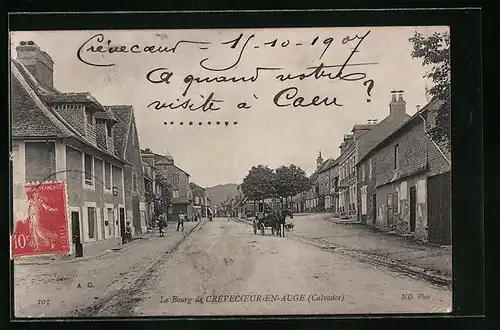 Crèvecœur - 15-10-1907
A quand votre
visite à Caen ?
10c
A. G.
101 Le Bourg de CRÈVECŒUR-EN-AUGE (Calvados) ND Phot